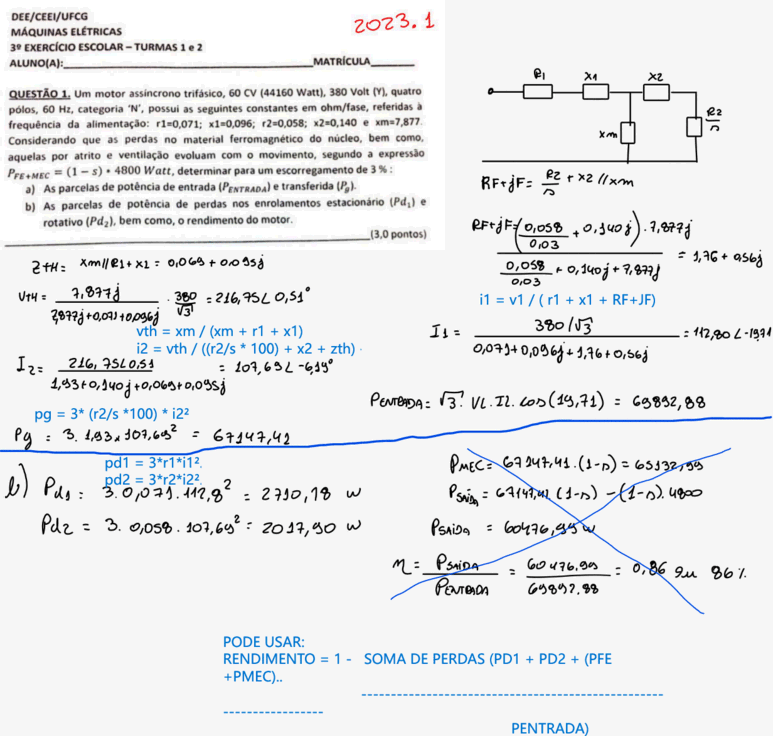 DEE/CEEI/UFCG
MÁQUINAS ELÉTRICAS
3º EXERCÍCIO ESCOLAR – TURMAS 1 e 2
ALUNO(A):____ MATRÍCULA____
2023.1
QUESTÃO 1. Um motor assíncrono trifásico, 60 CV (44160 Watt), 380 Volt (Y), quatro
pólos, 60 Hz, categoria 'N', possui as seguintes constantes em ohm/fase, referidas à
frequência da alimentação: r1=0,071; x1=0,096; r2=0,058; x2=0,140 e xm=7,877.
Considerando que as perdas no material ferromagnético do núcleo, bem como,
aquelas por atrito e ventilação evoluam com o movimento, segundo a expressão
P_FE+MEC = (1 − s) * 4800 Watt, determinar para um escorregamento de 3 % :
a) As parcelas de potência de entrada (P_ENTRADA) e transferida (P_g).
b) As parcelas de potência de perdas nos enrolamentos estacionário (Pd_1) e
rotativo (Pd_2), bem como, o rendimento do motor.
(3,0 pontos)
R1 x1 x2
xm R2/s
RF+jF= R2/s + x2 // xm
RF+jF= (0,058/0,03 + 0,140j) . 7,877j / (0,058/0,03 + 0,140j + 7,877j) = 1,76 + 0,56j
i1 = v1 / ( r1 + x1 + RF+JF)
I1 = 380/√3 / (0,071+0,096j+1,76+0,56j) = 112,80 ∠-19,71
PENTRADA = √3 . VL . IL . cos(19,71) = 69892,88
ZTH = xm//R1+x1 = 0,069 + 0,095j
VTH = 7,877j / (7,877j+0,071+0,096j) . 380/√3 = 216,75∠0,51°
vth = xm / (xm + r1 + x1)
i2 = vth / ((r2/s * 100) + x2 + zth)
I2 = 216,75∠0,51 / (1,93+0,140j+0,069+0,095j) = 107,69∠-6,19°
pg = 3* (r2/s *100) * i2²
Pg = 3. 1,93 x 107,69² = 67147,41
pd1 = 3*r1*i1².
pd2 = 3*r2*i2².
b) Pd1 = 3.0,071.112,8² = 2710,18 W
Pd2 = 3. 0,058. 107,69² = 2017,90 W
PMEC = 67147,41.(1-s) = 65132,99
Psaída = 67147,41 (1-s) - (1-s). 4800
PSAÍDA = 60476,99 W
η = PSAÍDA / PENTRADA = 60476,99 / 69892,88 = 0,86 ou 86 %
PODE USAR:
RENDIMENTO = 1 - SOMA DE PERDAS (PD1 + PD2 + (PFE
+PMEC)..
----------------------------------------------------
-----------------
PENTRADA)